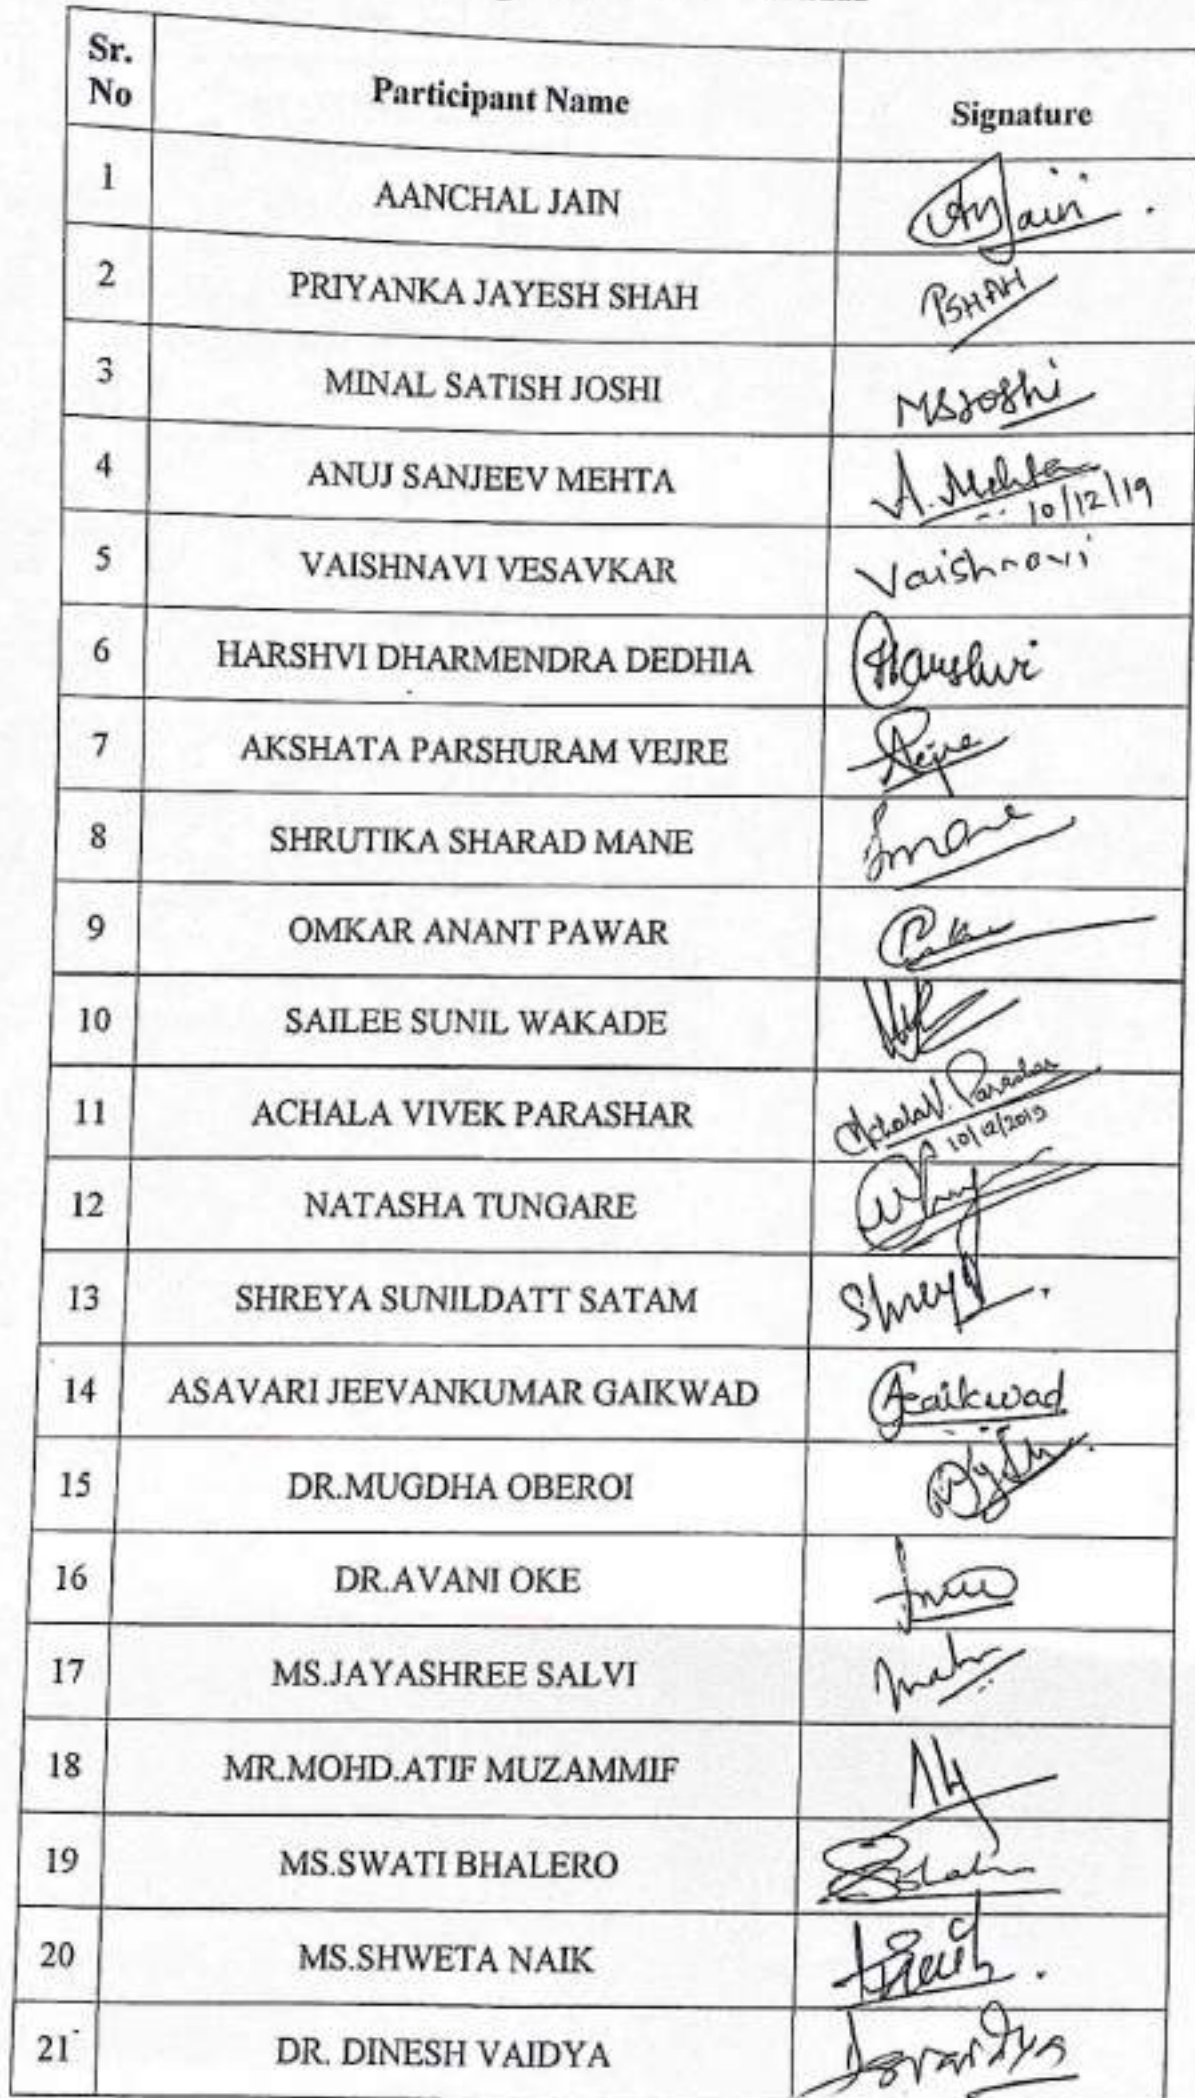 Sr. No Participant Name Signature
1 AANCHAL JAIN
2 PRIYANKA JAYESH SHAH PSHAH
3 MINAL SATISH JOSHI MSJoshi
4 ANUJ SANJEEV MEHTA A. Mehta
10/12/19
5 VAISHNAVI VESAVKAR Vaishnavi
6 HARSHVI DHARMENDRA DEDHIA Harshvi
7 AKSHATA PARSHURAM VEJRE
8 SHRUTIKA SHARAD MANE Smane
9 OMKAR ANANT PAWAR
10 SAILEE SUNIL WAKADE
11 ACHALA VIVEK PARASHAR Achala V. Parashar
10/12/2019
12 NATASHA TUNGARE
13 SHREYA SUNILDATT SATAM Shreya
14 ASAVARI JEEVANKUMAR GAIKWAD AGaikwad
15 DR.MUGDHA OBEROI
16 DR.AVANI OKE
17 MS.JAYASHREE SALVI
18 MR.MOHD.ATIF MUZAMMIF
19 MS.SWATI BHALERO
20 MS.SHWETA NAIK
21 DR. DINESH VAIDYA